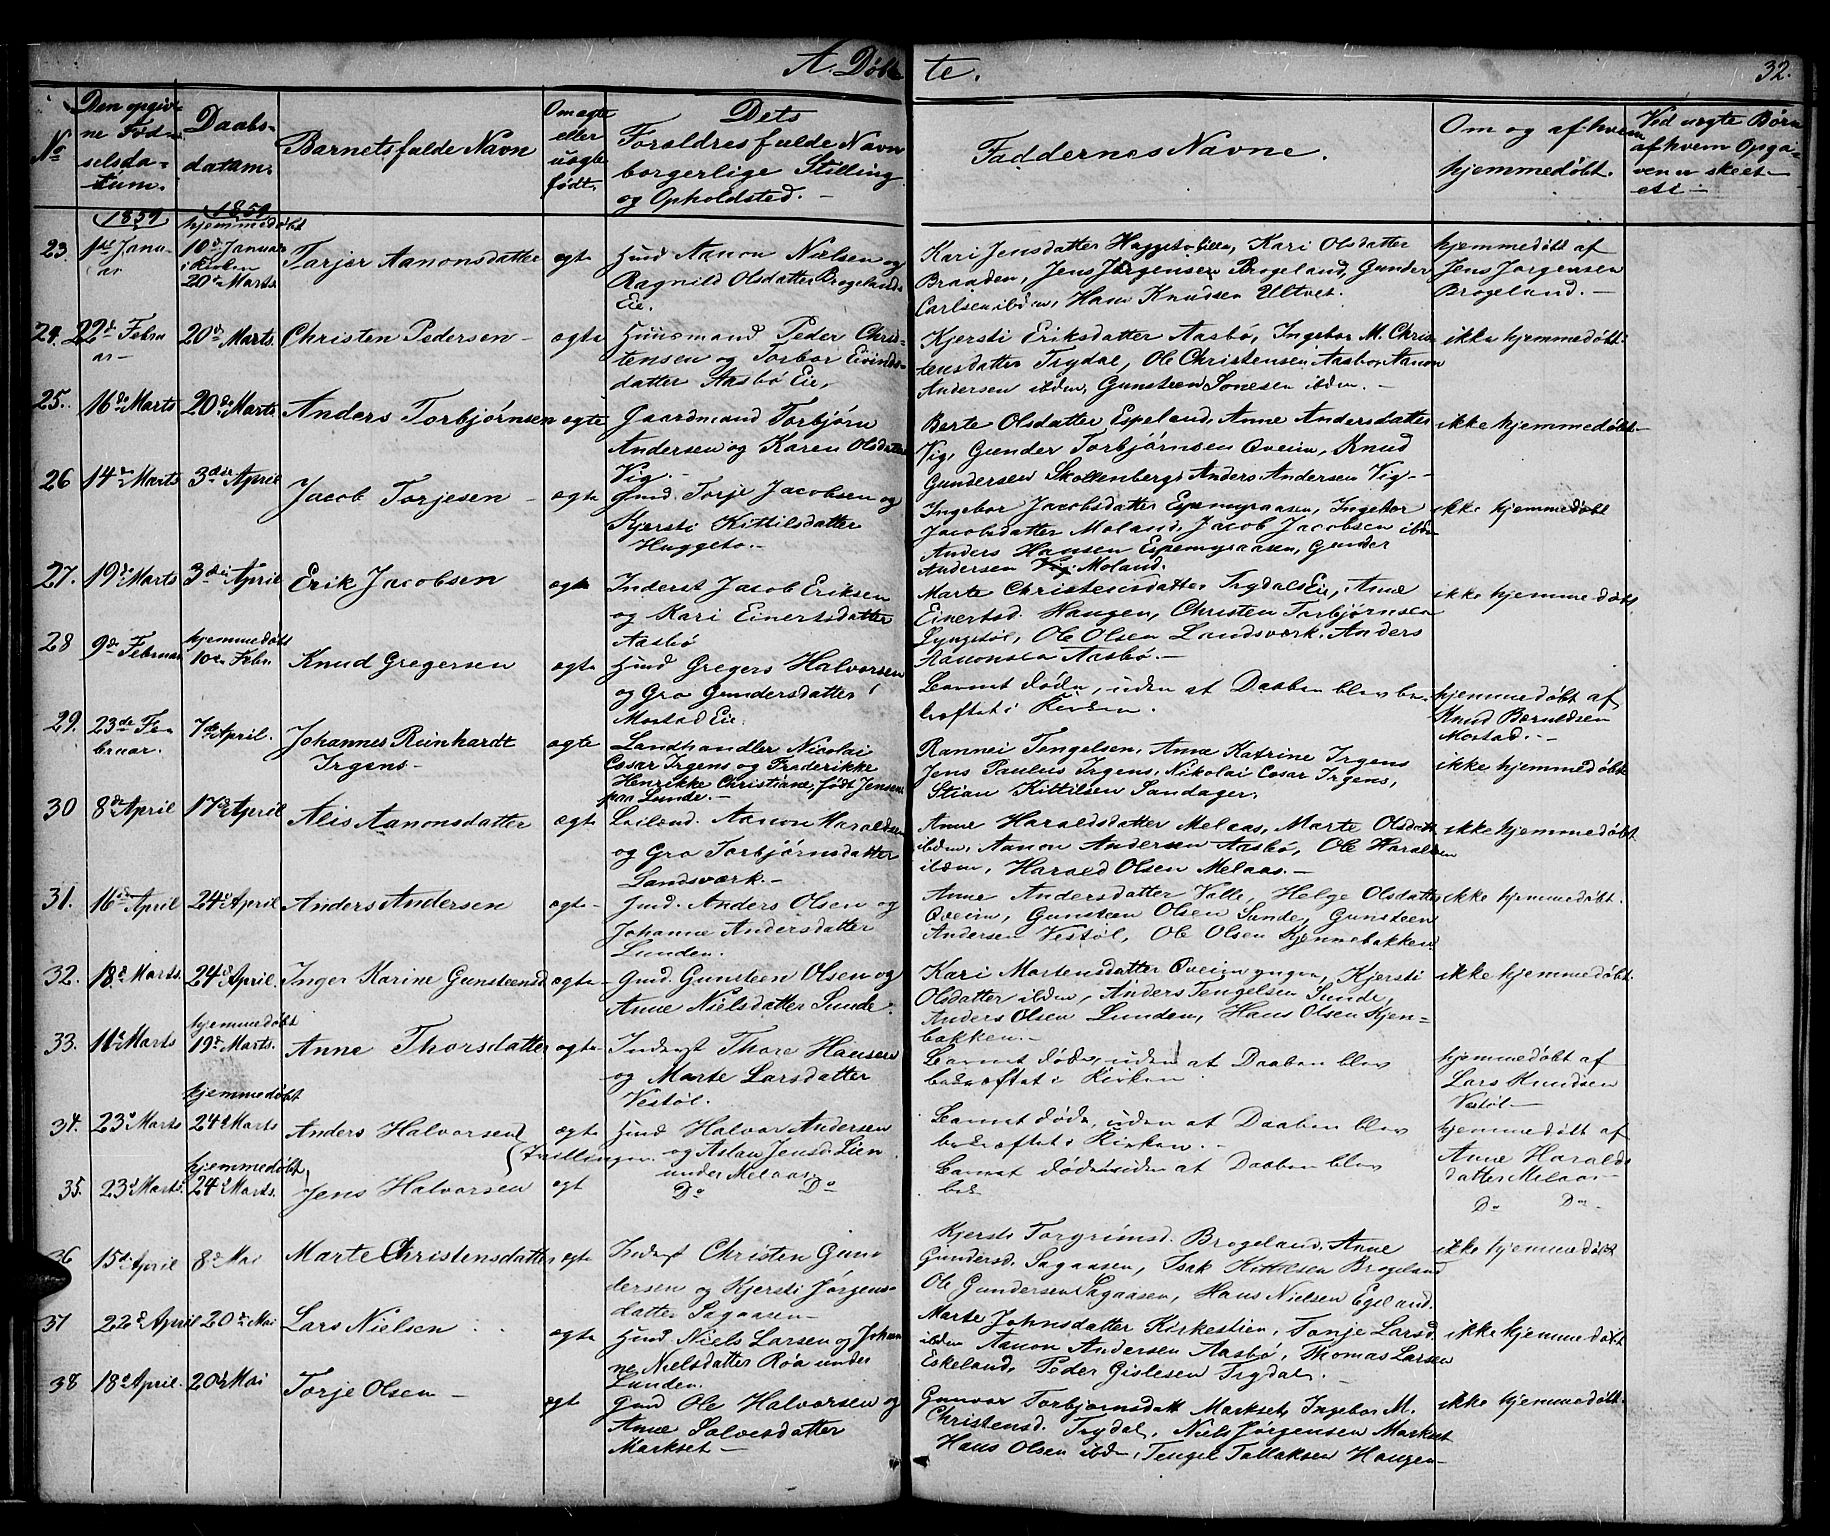 A. Døbte.
32.
No
Den opgivne Fødselsdatum.
Daabsdatum.
Barnets fulde Navn
Om ægte eller uægte født.
Dets Forældres fulde Navn borgerlige Stilling og Opholdsted.
Faddernes Navne.
Om og af hvem hjemmedøbt.
Ved uægte Børn af hvem Opgaven er skeet
1859
1859
23. 1ste Januar hjemmedøbt 10de Januar i Kirken 20de Marts
Torjer Aanonsdatter ægte
Hmd Aanon Nielsen og
Ragnild Olsdatter Brogelands
Eie.
Kari Jensdatter Huggeto, Kari Olsdatter
Braaden, Jens Jørgensen Brogeland, Gunder
Carlsen ibdm, Hans Knudsen Ultvet.
hjemmedøbt af
Jens Jørgensen
Brogeland.
24. 22de Februar 20de Marts. Christen Pedersen ægte
Huusmand Peder Christensen og Torbor Eivindsdatter Aasbø Eie.
Kjersti Eriksdatter Aasbø, Ingebor M. Christensdatter Trydal, Ole Christensen Aasbø, Aanon
Andersen ibdm, Gunsteen Sonesen ibdm.
ikke hjemmedøbt
25. 16de Marts 20de Marts Anders Torbjørnsen ægte
Gaardmand Torbjørn
Andersen og Karen Olsdatter
Vig.
Berte Olsdatter Espeland, Anne Andersdatter
Vig, Gunder Torbjørnsen Øveim, Knud
Gundersen Skoltenberg, Anders Andersen Vig
ikke hjemmedøbt
26 14de Marts 3die April Jacob Torjesen ægte
Gmd. Torje Jacobsen og
Kjersti Kittilsdatter
Huggeto.
Ingebor Jacobsdatter Espemyraasen, Ingebor
Jacobsdatter Moland, Jacob Jacobsen ibdm
Anders Hansen Espemyraasen, Gunder
Andersen Moland.
ikke hjemmedøbt
27. 19de Marts 3die April Erik Jacobsen ægte
Inderst Jacob Eriksen
og Kari Einertsdatter
Aasbø
Marte Christensdatter Trydals Eie, Anne
Einertsd. Haugen, Christen Torbjørnsen
Lyngstøl, Ole Olsen Landsværk, Anders
Aanonsen Aasbø.
ikke hjemmedøbt
28 9de Februar hjemmedøbt 10de Febr. Knud Gregersen ægte
Hmd Gregers Halvorsen
og Gro Gundersdatter
Mostad Eie.
Barnet døde, uden at Daaben blev bekræftet i Kirken.
hjemmedøbt af
Knud Berntdsen
Mostad.
29. 23de Februar. 7de April. Johannes Reinhardt
Irgens ægte
Landhandler Nicolai
Cesar Irgens og Frederikke
Henrikke Christiane, født Jensen
paa Lunde.
Rannei Tengelsen, Anne Katrine Irgens
Jens Paulus Irgens, Nikolai Cesar Irgens,
Stian Kittilsen Sandager.
ikke hjemmedøbt
30 8de April 17de April Alis Aanonsdatter ægte
Leilænd. Aanon Haraldsen
og Gro Torbjørnsdatter
Landsværk.
Anne Haraldsdatter Melaas, Marte Olsdatter
ibdm, Aanon Andersen Aasbø, Ole Haraldsen
ibdm, Harald Olsen Melaas.
ikke hjemmedøbt
31. 16de April 24de April Anders Andersen ægte
Hmd. Anders Olsen og
Johanne Andersdatter
Lunden.
Anne Andersdatter Valle, Helge Olsdatter
Øveim, Gunsteen Olsen Sunde, Gunsteen
Andersen Vestøl, Ole Olsen Kjennebakken
ikke hjemmedøbt.
32. 18de Marts. 24de April. Inger Karine Gunsteensd ægte
Gmd. Gunsteen Olsen og
Anne Nielsdatter Sunde.
Kari Mortensdatter Øveim yngre, Kjersti
Olsdatter ibdm, Anders Tengelsen Sunde,
Anders Olsen Lunden, Hans Olsen Kjenbakken.
ikke hjemmedøbt
33. 11te Marts hjemmedøbt 19de Marts. Anne Thorsdatter ægte
Inderst Thore Hansen
og Marte Larsdatter
Vestøl.
Barnet døde, uden at Daaben blev
bekræftet i Kirken
hjemmedøbt af
Lars Knudsen
Vestøl
34. 23de Marts hjemmedøbt 24de Marts Anders Halvorsen ægte
Tvillinger.
Hmd Halvor Andersen
og Aslau Jensd. Lien
under Melaas.
Barnet døde, uden at Daaben blev
bekræftet i Kirken.
hjemmedøbt af
Anne Haraldsdatter Melaas
35. 23de Marts. hjemmedøbt 24de Marts. Jens Halvorsen ægt
Do Do
Barnet døde uden at Daaben blev
bek
Do Do
36 15de April 8de Mai Marte Christensdatter ægte
Inderst Christen Gundersen og Kjersti Jørgensdatter Sagaasen
Kjersti Torgrimsd. Brogeland, Anne
Gundersd. Sagaasen, Isak Kittilsen Brogeland
Ole Gundersen Sagaasen, Hans Nielsen Egeland.
ikke hjemmedøbt
37 22de April 20de Mai Lars Nielsen ægte
Hmd. Niels Larsen og Johanne Nielsdatter Røa under
Lunden.
Marte Johnsdatter Kirkestien, Tonje Larsd.
ibdm Aanon Andersen Aasbø, Thomas Larsen
Eskeland, Peder Gislesen Trydal.
ikke hjemmedøbt
38 18de April. 20de Mai Torje Olsen ægt
Gmd Ole Halvorsen og
Anne Solvesdatter
Markset
Gunvor Torbjørnsdatt Markset, Ingebor M.
Christensd. Trydal, Niels Jørgensen Markset
Hans Olsen ibdm, Tengel Tallaksen Haugen
ikke hjemmedøbt